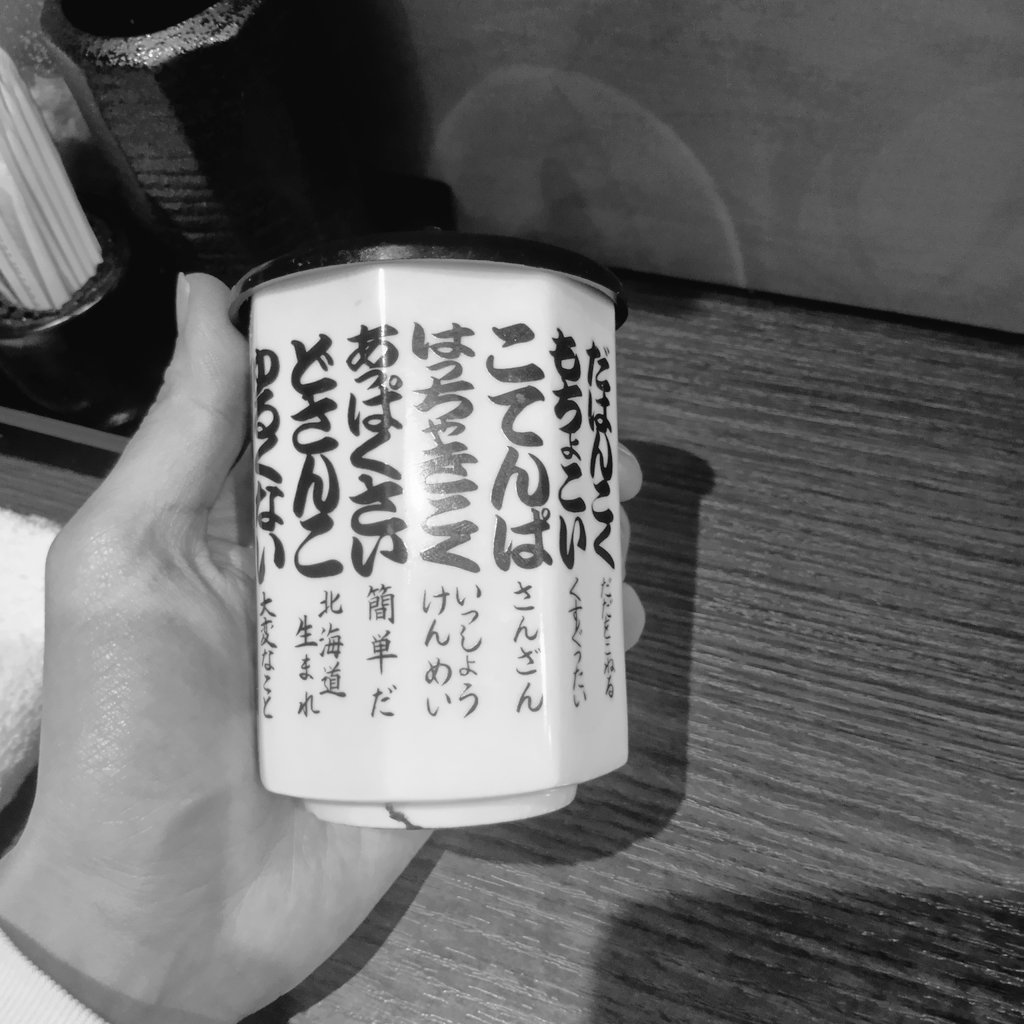 だはんこく
だだをこねる
もちょこい
くすぐったい
こてんぱ
さんざん
はっちゃきこく
いっしょう
けんめい
あっぱくさい
簡単だ
どさんこ
北海道
生まれ
ゆるくない
大変なこと